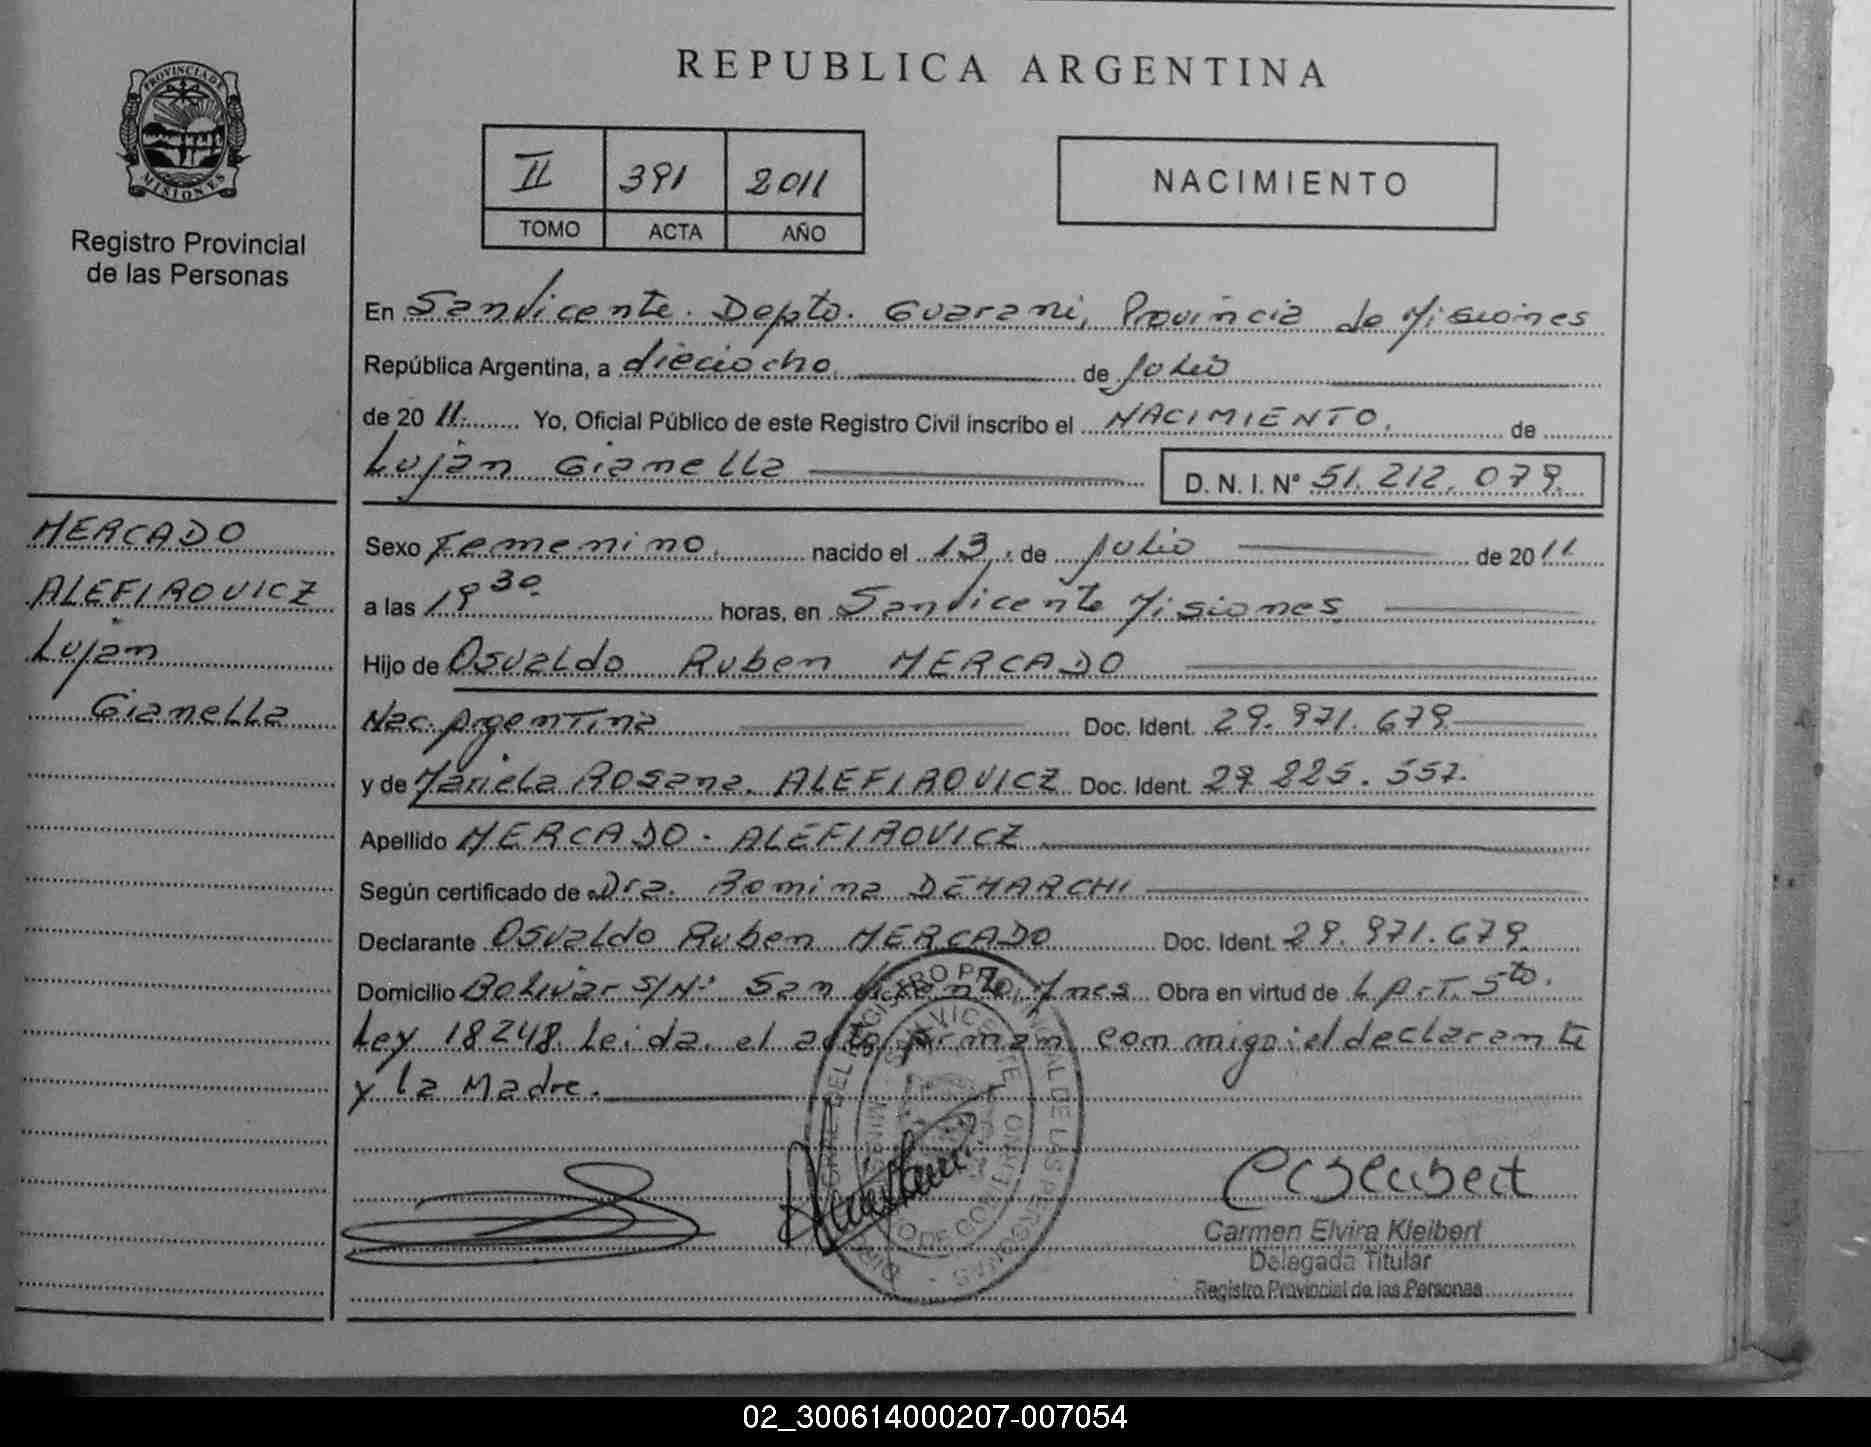 PROVINCIA DE
MISIONES
Registro Provincial
de las Personas
MERCADO
ALEFIROVICZ
Luján
Gianella
REPUBLICA ARGENTINA
II 391 2011
TOMO ACTA AÑO
NACIMIENTO
En San Vicente. Depto. Guarani, Provincia de Misiones
República Argentina, a dieciocho. de Julio
de 20 11. Yo, Oficial Público de este Registro Civil inscribo el NACIMIENTO. de
Luján Gianella D. N. I. N° 51.212.079.
Sexo Femenino. nacido el 13. de Julio de 20 11.
a las 19 30. horas, en San Vicente Misiones.
Hijo de Osvaldo Ruben MERCADO
Nac. Argentina Doc. Ident. 29.971.679.
y de Mariela Rosana. ALEFIROVICZ Doc. Ident. 29 225.557.
Apellido MERCADO - ALEFIROVICZ
Según certificado de Dra. Romina DEMARCHI
Declarante Osvaldo Ruben MERCADO Doc. Ident. 29.971.679.
Domicilio Bolivar S/N° San Vicente, Mnes Obra en virtud de L P. r T. 5to.
Ley 18248. Leida. el acta firman conmigo: el declarante
y la Madre.
SAN VICENTE
Carmen Elvira Kleibert
Delegada Titular
Registro Provincial de las Personas
02_300614000207-007054